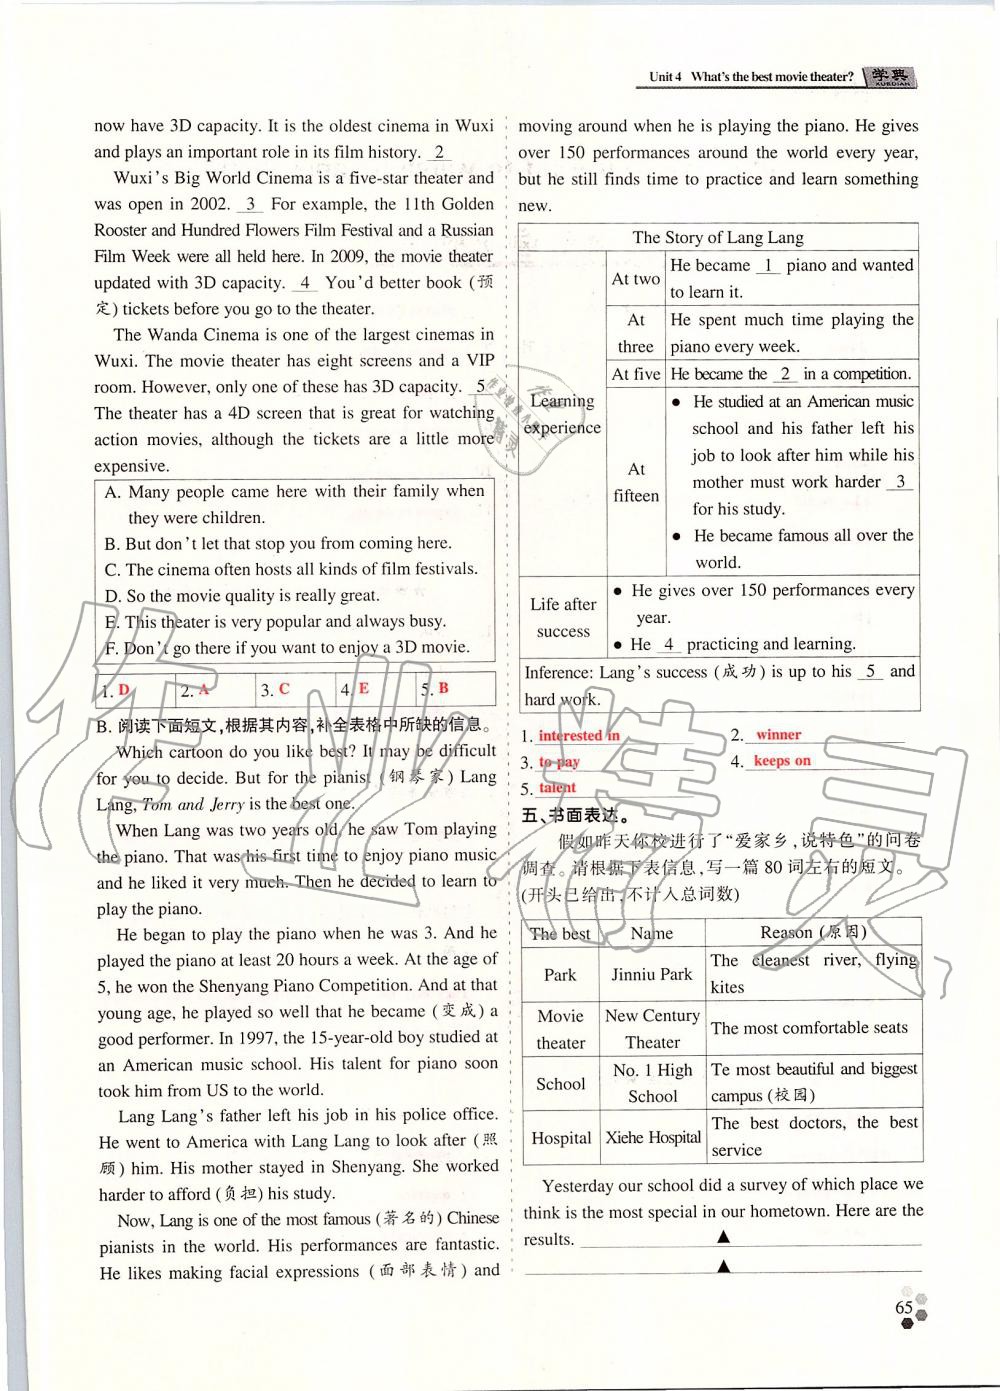 Unit 4 What's the best movie theater? 学典
XUEDIAN
now have 3D capacity. It is the oldest cinema in Wuxi
and plays an important role in its film history. 2
Wuxi's Big World Cinema is a five-star theater and
was open in 2002. 3 For example, the 11th Golden
Rooster and Hundred Flowers Film Festival and a Russian
Film Week were all held here. In 2009, the movie theater
updated with 3D capacity. 4 You'd better book (预
定) tickets before you go to the theater.
The Wanda Cinema is one of the largest cinemas in
Wuxi. The movie theater has eight screens and a VIP
room. However, only one of these has 3D capacity. 5
The theater has a 4D screen that is great for watching
action movies, although the tickets are a little more
expensive.
A. Many people came here with their family when
they were children.
B. But don't let that stop you from coming here.
C. The cinema often hosts all kinds of film festivals.
D. So the movie quality is really great.
E. This theater is very popular and always busy.
F. Don't go there if you want to enjoy a 3D movie.
1. D 2. A 3. C 4. E 5. B
B. 阅读下面短文,根据其内容,补全表格中所缺的信息。
Which cartoon do you like best? It may be difficult
for you to decide. But for the pianist (钢琴家) Lang
Lang, Tom and Jerry is the best one.
When Lang was two years old, he saw Tom playing
the piano. That was his first time to enjoy piano music
and he liked it very much. Then he decided to learn to
play the piano.
He began to play the piano when he was 3. And he
played the piano at least 20 hours a week. At the age of
5, he won the Shenyang Piano Competition. And at that
young age, he played so well that he became (变成) a
good performer. In 1997, the 15-year-old boy studied at
an American music school. His talent for piano soon
took him from US to the world.
Lang Lang's father left his job in his police office.
He went to America with Lang Lang to look after (照
顾) him. His mother stayed in Shenyang. She worked
harder to afford (负担) his study.
Now, Lang is one of the most famous (著名的) Chinese
pianists in the world. His performances are fantastic.
He likes making facial expressions (面部表情) and
moving around when he is playing the piano. He gives
over 150 performances around the world every year,
but he still finds time to practice and learn something
new.
The Story of Lang Lang
Learning
experience
At two
He became 1 piano and wanted
to learn it.
At
three
He spent much time playing the
piano every week.
At five He became the 2 in a competition.
At
fifteen
● He studied at an American music
school and his father left his
job to look after him while his
mother must work harder 3
for his study.
● He became famous all over the
world.
Life after
success
● He gives over 150 performances every
year.
● He 4 practicing and learning.
Inference: Lang's success (成功) is up to his 5 and
hard work.
1. interested in 2. winner
3. to pay 4. keeps on
5. talent
五、书面表达。
假如昨天你校进行了“爱家乡,说特色”的问卷
调查。请根据下表信息,写一篇 80 词左右的短文。
(开头已给出,不计入总词数)
The best Name Reason (原因)
Park Jinniu Park The cleanest river, flying
kites
Movie
theater New Century
Theater The most comfortable seats
School No. 1 High
School Te most beautiful and biggest
campus (校园)
Hospital Xiehe Hospital The best doctors, the best
service
Yesterday our school did a survey of which place we
think is the most special in our hometown. Here are the
results. ▲
▲
65
作业精灵